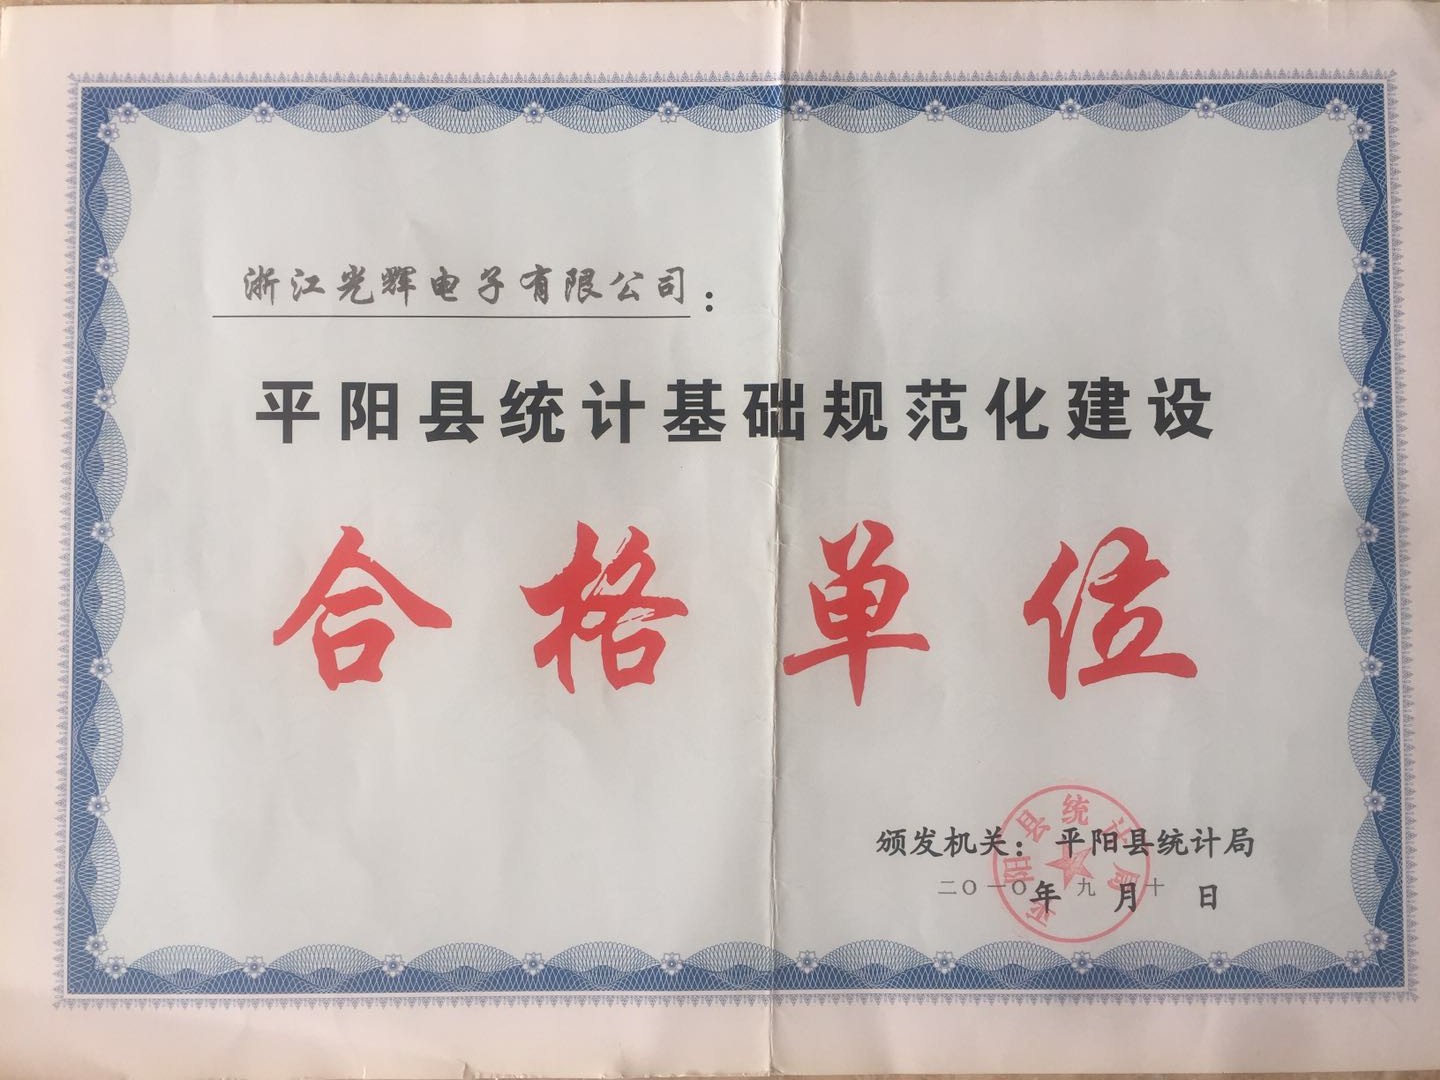 浙江光辉电子有限公司：
平阳县统计基础规范化建设
合格单位
颁发机关：平阳县统计局
二〇一〇年九月十日
平阳县统计局